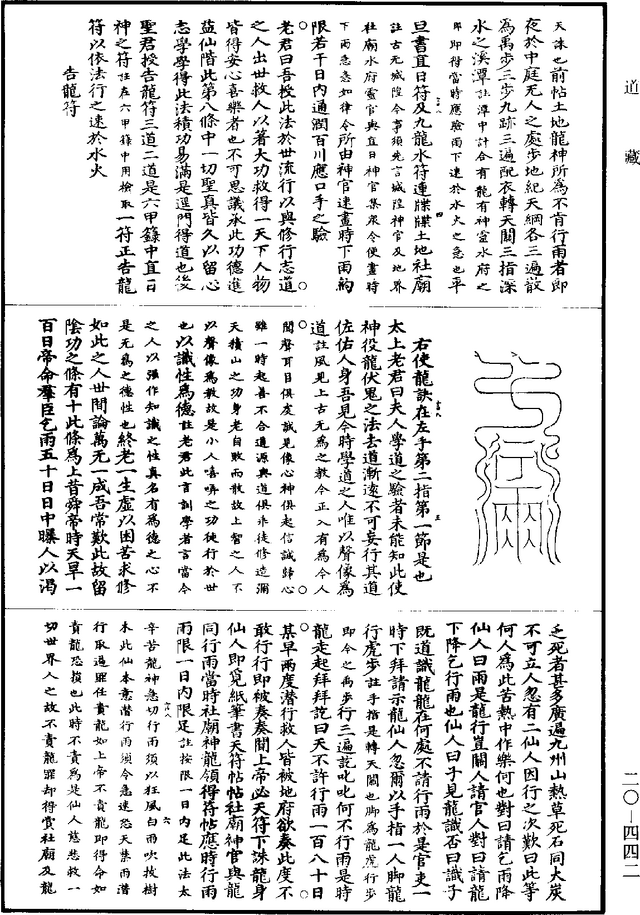 道藏
天誅也前帖土地龍神所為不肯行雨者即
夜於中庭无人之處步地紀天綱各三遍散
為禹步三步九跡三遍配衣轉天關三指深
水之溪潭註潭中計合有龍有神靈水府之
即即得當時應驗雨下速於水火之急也平
旦書直日符及九龍水符連牒牒土地社廟
註古无城隍今事須先言城隍神官及地界
社廟水府靈官與直日神官集衆令使畫時
下雨急急如律令所由神官速畫時下雨約
限若干日內通潤百川應口手之驗
老君曰吾授此法於世流行以與修行志道
之人出世救人以著大功救得一天下人物
皆得安心喜樂者也不可思議承此功德進
益仙階此第八條中一切聖真皆久以留心
志學學得此法積功易滿是選門得道也後
聖君授告龍符三道二道是六甲籙中直日
神之符註在六甲籙中用檢取一符正告龍
符以依法行之速於水火
告龍符
右使龍訣在左手第二指第一節是也
太上老君曰夫人學道之驗者未能知此使
神役龍伏鬼之法去道漸遠不可妄行其道
佐佑人身吾見今時學道之人唯以聲像為
道註風見上古无為之教今正入有為今人
聞聲耳目俱虔誠見像心神俱起信誠歸心
雖一時起善不合道源與道俱乖徒修造瀰
天積山之功身老自敗而散故上智之人不
以聲像為教故是小人嘻嘩之功徒行於世
也以識性為德註老君此言訓學者言當今
之人以強作知識之性真名有為德之心不
是无為之德性也終老一生虛以困苦求修
如此之人世間論萬无一成吾常歎此故留
陰功之條有十此條為上昔舜帝時天旱一
百日帝命羣臣乞雨五十日日中曝人以渴
乏死者甚多廣遍九州山熱草死石同大炭
不可立人忽有二仙人因行之次歎曰此等
何人為此苦熱中作樂何也對曰請乞雨降
仙人曰雨是龍行豈關人請官人對曰請龍
下降乞行雨也仙人曰子見龍識否曰識子
既道識龍龍在何處不請行雨於是官吏一
時下拜請示龍仙人忽爾以手指一人脚龍
行虎步註手指是轉天關也脚為龍虎行步
即今之禹步行三遍說叱叱何不行雨是時
龍走起拜拜訖曰天不許行雨一百八十日
某早兩度潛行救人皆被地府欲奏此度不
敢行行即被奏奏聞上帝必天符下誅龍身
仙人即覓紙筆書天符帖帖社廟神官與龍
同行雨當時社廟神龍領得符帖應時行雨
雨限一日內限足註按限一日內足此法太
辛苦龍神急切行雨須以狂風白雨吹拔樹
木此仙本意潛行雨須令急速恐天集雨潛
行取過罪任責龍如上帝不責龍即得命如
責龍恐損也此時不責為是仙人慈悲救一
切世界人之故不責龍罪却得賞社廟及龍
二〇—四四二